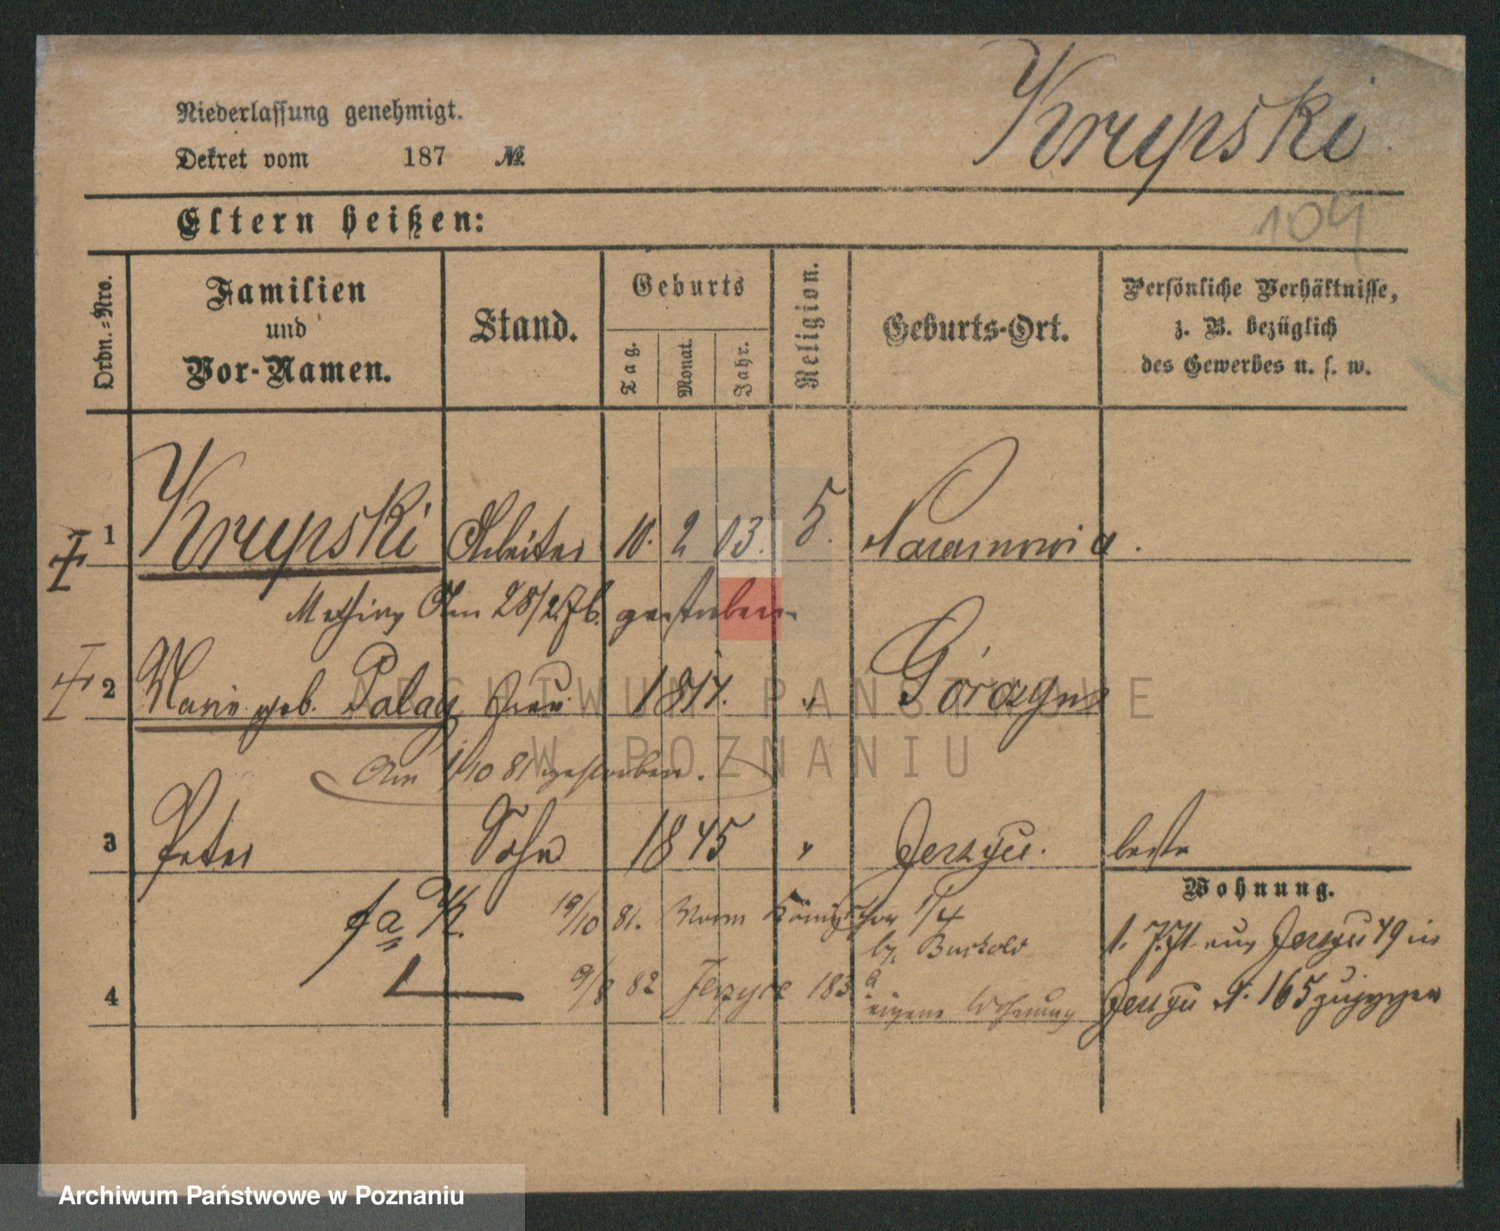 Krupski
Niederlassung genehmigt.
Dekret vom 187 №
104
Eltern heißen:
Ordn.-Nro.
Familien
und
Vor-Namen.
Stand.
Geburts
Tag.
Monat.
Jahr.
Religion.
Geburts-Ort.
Persönliche Verhältnisse,
z. B. bezüglich
des Gewerbes u. s. w.
1 Krupski Arbeiter 10. 2 03. 5. Naramowice.
Am 28/2.76. gestorben
2 Marie geb. Palacz Frau 1817. " Górczyn
Am 1/10 81 gestorben.
3 Peter Sohn 1845 " Jerzyce.
Wohnung.
fa K. 19/10 81. Vorm Königsthor 1/4
b.
Jerzyce 49 in
4 9/8 82 Jerzyce 183a
eigene Wohnung
Jerzyce N. 165 zugezogen
ARCHIWUM PAŃSTWOWE
W POZNANIU
Archiwum Państwowe w Poznaniu